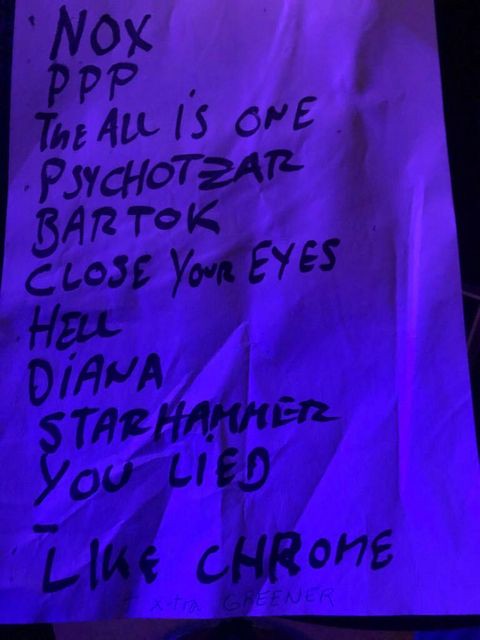 NOX
PPP
THE ALL IS ONE
PSYCHOTZAR
BARTOK
CLOSE YOUR EYES
HELL
DIANA
STARHAMMER
YOU LIED
-
LIKE CHROME
x-tra GREENER